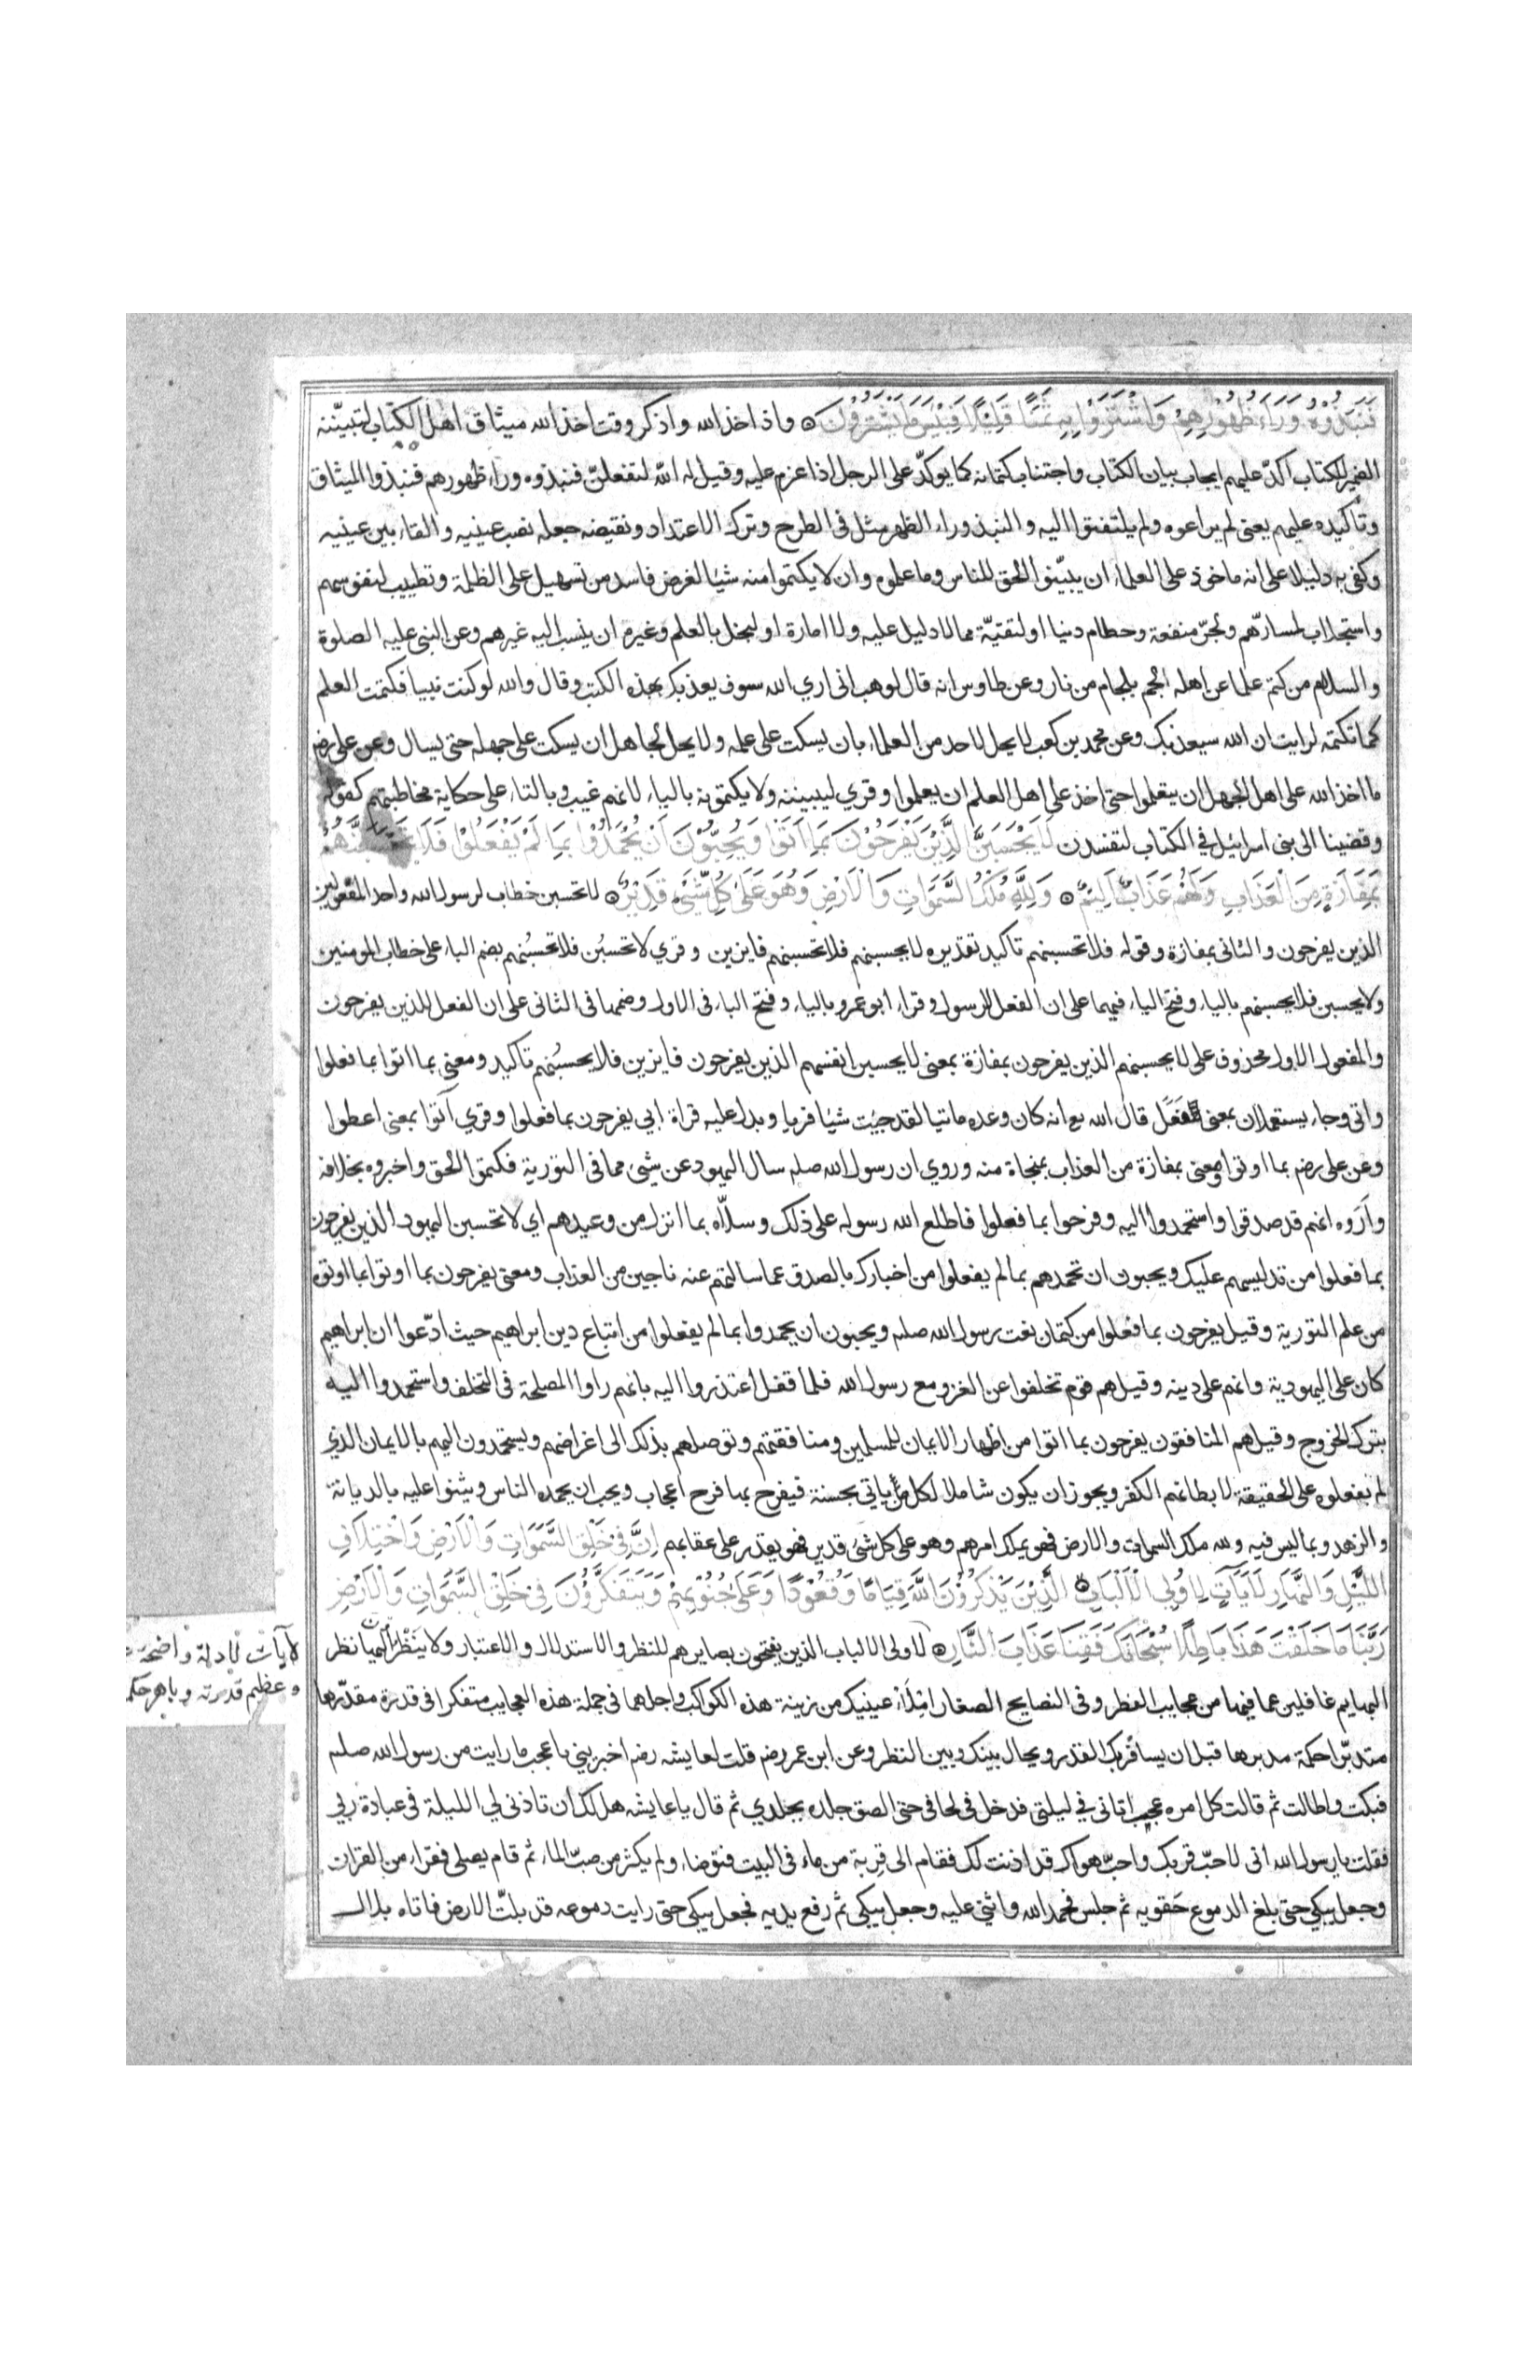 فَنَبَذُوْهُ وَرَاءَ ظُهُوْرِهِمْ وَاشْتَرَوْا بِهِ ثَمَنًا قَلِيْلًا فَبِئْسَ مَا يَشْتَرُوْنَ ۞ واذ اخذ الله واذكر وقت اخذ الله ميثاق اهل الكتاب لتبيننه
الضمير للكتاب اكدّ عليهم ايجاب بيان الكتاب واجتناب كتمانه كما يوكدّ على الرجل اذا عزم عليه وقيل له اللّه لتفعلنّ فنبذوه وراء ظهورهم فنبذوا الميثاق
وتاكيده عليهم يعنى لم يراعوه ولم يلتفتوا اليه والنبذ وراء الظهر مثل فى الطرح وترك الاعتداد ونقيضه جعله نصب عينيه والقاه بين عينيه
وكفى به دليلا على انه ماخوذ على العلماء ان يبيّنوا الحق للناس وما علموه وان لا يكتموا منه شيئا لغرض فاسد من تسهيل على الظلمة وتطييب لنفوسهم
واستجلاب لمسارّهم ولجرّ منفعة وحطام دنيا او لتقيّة مما لا دليل عليه ولا امارة او لبخل بالعلم وغيرة ان ينسب اليه غيرهم وعن النبى عليه الصلوة
والسلام من كتم علما عن اهله الجم بلجام من نار وعن طاوس انه قال لوهب انى اري الله سوف يعذبك بهذه الكتب وقال والله لو كنت نبيا فكتمت العلم
كما تكتمه لرايت ان الله سيعذبك وعن محمد بن كعب لا يحل لاحد من العلماء بان يسكت على علمه ولا يحل لجاهل ان يسكت على جهله حتى يسال وعن على رضه
ما اخذ الله على اهل الجهل ان يتعلموا حتى اخذ على اهل العلم ان يعلموا وقري ليبيننه ولا يكتمونه بالياء لانهم غيب وبالتاء على حكاية مخاطبتهم كقوله
وقضينا الى بنى اسرائيل في الكتاب لتفسدن لَا يَحْسَبَنَّ الَّذِيْنَ يَفْرَحُوْنَ بِمَا اَتَوْا وَيُحِبُّوْنَ اَنْ يُحْمَدُوْا بِمَا لَمْ يَفْعَلُوْا فَلَا تَحْسَبَنَّهُمْ
بِمَفَازَةٍ مِنَ الْعَذَابِ وَلَهُمْ عَذَابٌ اَلِيْمٌ ۞ وَلِلّٰهِ مُلْكُ السَّمٰوَاتِ وَالْاَرْضِ وَهُوَ عَلٰى كُلِّ شَيْءٍ قَدِيْرٌ ۞ لا تحسبن خطاب لرسول الله واحد المفعولين
الذين يفرحون والثانى بمفازة وقوله فلا تحسبنهم تاكيد تقديره لا يحسبنهم فلا تحسبنهم فايزين وقري لا تحسبُن فلا تحسبُنهم بضم الباء على خطاب المومنين
ولا يحسبن فلا يحسبنهم بالياء وفتح الباء فيهما على ان الفعل للرسول وقراء ابو عمرو بالياء وفتح الباء فى الاول وضمها فى الثانى على ان الفعل للذين يفرحون
والمفعول الاول محذوف على لا يحسبنهم الذين يفرحون بمفازة بمعنى لا يحسبن انفسهم الذين يفرحون فايزين فلا يحسبُنهم تاكيد ومعنى بما اتوا بما فعلوا
واتى وجاء يستعملان بمعنى فَعَل قال الله تع انه كان وعده ماتيا لقد جيت شيئا فريا ويدل عليه قراة ابي يفرحون بما فعلوا وقري آتوا بمعنى اعطوا
وعن على رضه بما اوتوا ومعنى بمفازة من العذاب بمنجاة منه وروي ان رسول الله صلم سال اليهود عن شئ مما فى التورية فكتموا الحق واخبروه بخلافه
واَرَوه انهم قد صدقوا واستحمدوا اليه وفرحوا بما فعلوا فاطلع الله رسوله على ذلك وسلّاه بما انزل من وعيدهم اي لا تحسبن اليهود الذين يفرحون
بما فعلوا من تدليسهم عليك ويحبون ان تحمدهم بما لم يفعلوا من اخبارك بالصدق عما سالتهم عنه ناجين من العذاب ومعنى يفرحون بما اوتوا بما اوتوه
من علم التورية وقيل يفرحون بما فعلوا من كتمان نعت رسول الله صلم ويحبون ان يحمدوا بما لم يفعلوا من اتباع دين ابراهيم حيث ادّعوا ان ابراهيم
كان على اليهودية وانهم على دينه وقيل هم قوم تخلفوا عن الغزو مع رسول الله فلما قفل اعتذروا اليه بانهم راوا المصلحة فى التخلف واستحمدوا اليه
بترك الخروج وقيل هم المنافقون يفرحون بما اتوا من اظهار الايمان للمسلمين ومنافقتهم وتوصلهم بذلك الى اغراضهم ويستحمدون اليهم بالايمان الذي
لم يفعلوه على الحقيقة لابطانهم الكفر ويجوز ان يكون شاملا لكل من ياتى بحسنة فيفرح بها فرح اعجاب ويحب ان يحمده الناس ويثنوا عليه بالديانة
والزهد وبما ليس فيه ولله ملك السموات والارض فهو يملك امرهم وهو على كل شئ قدير فهو يقدر على عقابهم اِنَّ فِيْ خَلْقِ السَّمٰوَاتِ وَالْاَرْضِ وَاخْتِلَافِ
اللَّيْلِ وَالنَّهَارِ لَاٰيَاتٍ لِاُولِي الْاَلْبَابِ ۞ الَّذِيْنَ يَذْكُرُوْنَ اللّٰهَ قِيَامًا وَقُعُوْدًا وَعَلٰى جُنُوْبِهِمْ وَيَتَفَكَّرُوْنَ فِيْ خَلْقِ السَّمٰوَاتِ وَالْاَرْضِ
رَبَّنَا مَا خَلَقْتَ هَذَا بَاطِلًا سُبْحَانَكَ فَقِنَا عَذَابَ النَّارِ ۞ لاولى الالباب الذين يفتحون بصايرهم للنظر والاستدلال والاعتبار ولا ينظرون اليها نظر
لآيات لادلة واضحة
وعظيم قدرته وباهر حكم
البهايم غافلين عما فيها من عجايب الفطر وفى النصايح الصغار املأ عينيك من زينة هذه الكواكب واجلهما فى جملة هذه العجايب متفكرا فى قدرة مقدّرها
متدبّرا حكمة مدبرها قبل ان يسافر بك القدر ويحال بينك وبين النظر وعن ابن عمر رضه قلت لعايشه رضه اخبريني باعجب ما رايت من رسول الله صلم
فبكت واطالت ثم قالت كل امره عجيب اتانى في ليلتى فدخل فى لحافى حتى الصق جلده بجلدي ثم قال يا عايشه هل لك ان تاذنى لي الليلة فى عبادة ربي
فقلت يا رسول الله انى لاحبّ قربك واحبّ هواك قد اذنت لك فقام الى قِربة من ماء فى البيت فتوضاء ولم يكثر من صبّ الماء ثم قام يصلى فقراء من القران
وجعل يبكي حتى بلغ الدموع حَقويه ثم جلس فحمد الله واثنى عليه وجعل يبكى ثم رفع يديه فجعل يبكى حتى رايت دموعه قد بلّت الارض فاتاه بلال